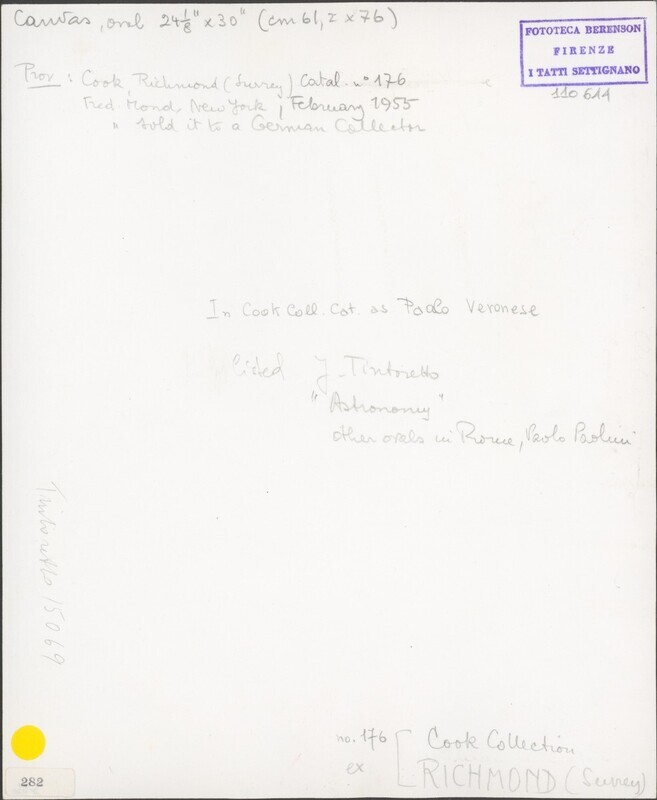 Canvas, oval 24⅛" x 30" (cm 61,2 x 76)
FOTOTECA BERENSON
FIRENZE
I TATTI SETTIGNANO
110 614
Prov: Cook, Richmond (Surrey) Catal. nº 176
Fred. Mond, New York, February 1955
" sold it to a German Collector
In Cook Coll. Cat. as Paolo Veronese
listed J. Tintoretto
"Astronomy"
other ovals in Rome, Paolo Paolini
Tintoretto 15069
no. 176 [ Cook Collection
ex RICHMOND (Surrey)
282